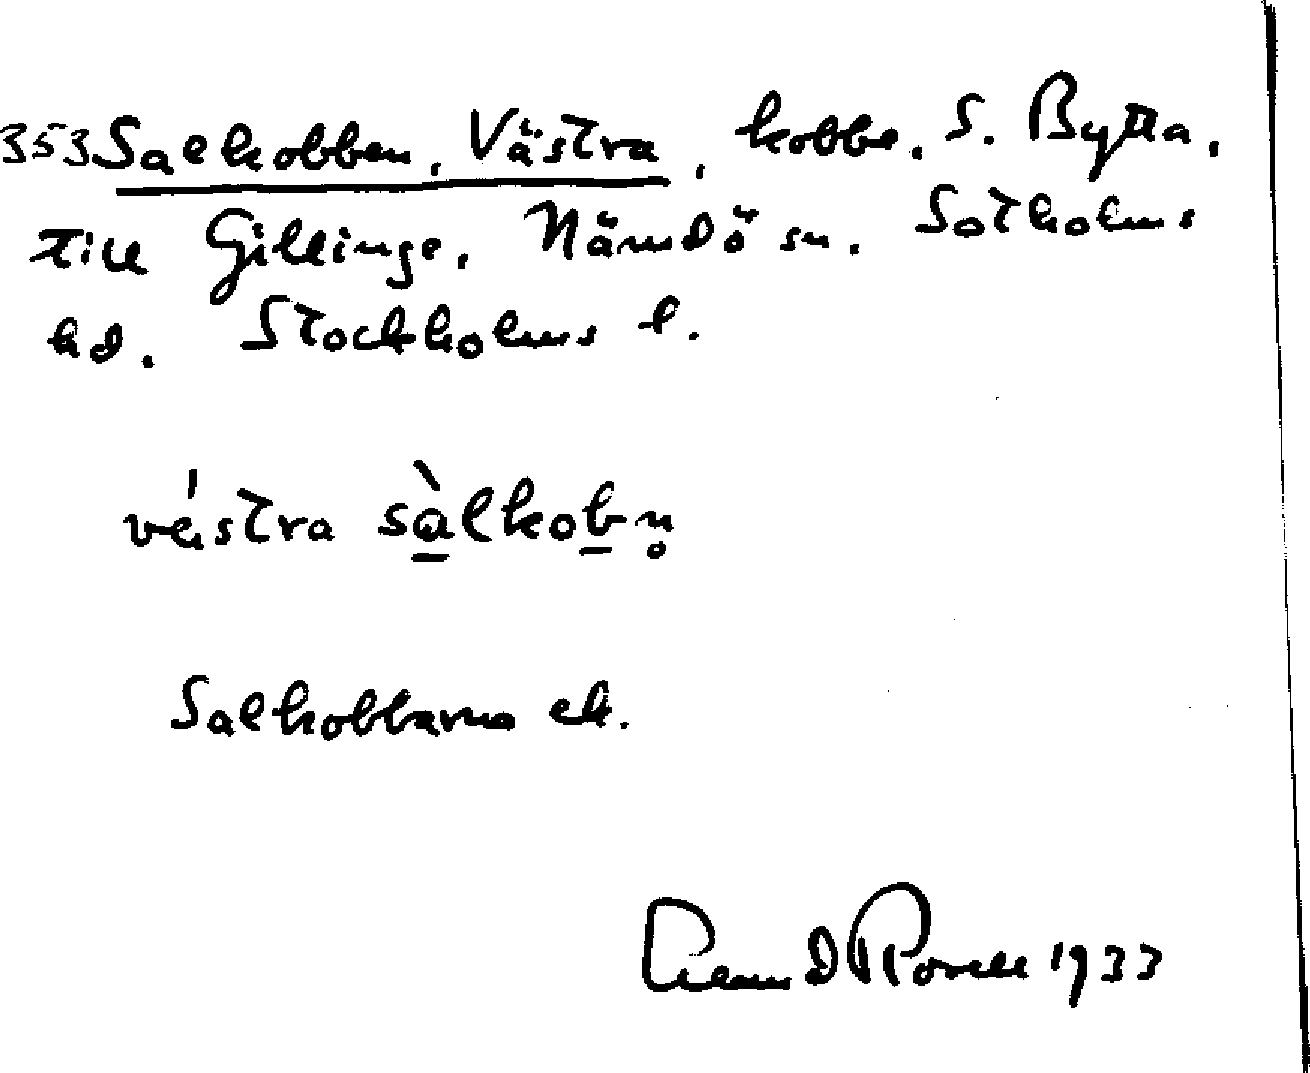 353 Salkobben, Västra, kobbe, S. Bytta,
till Gillinge, Nämdö sn. Sotholms
hd. Stockholms l.
vä́stra sàlkobn̥
Salkobbarna ek.
1933